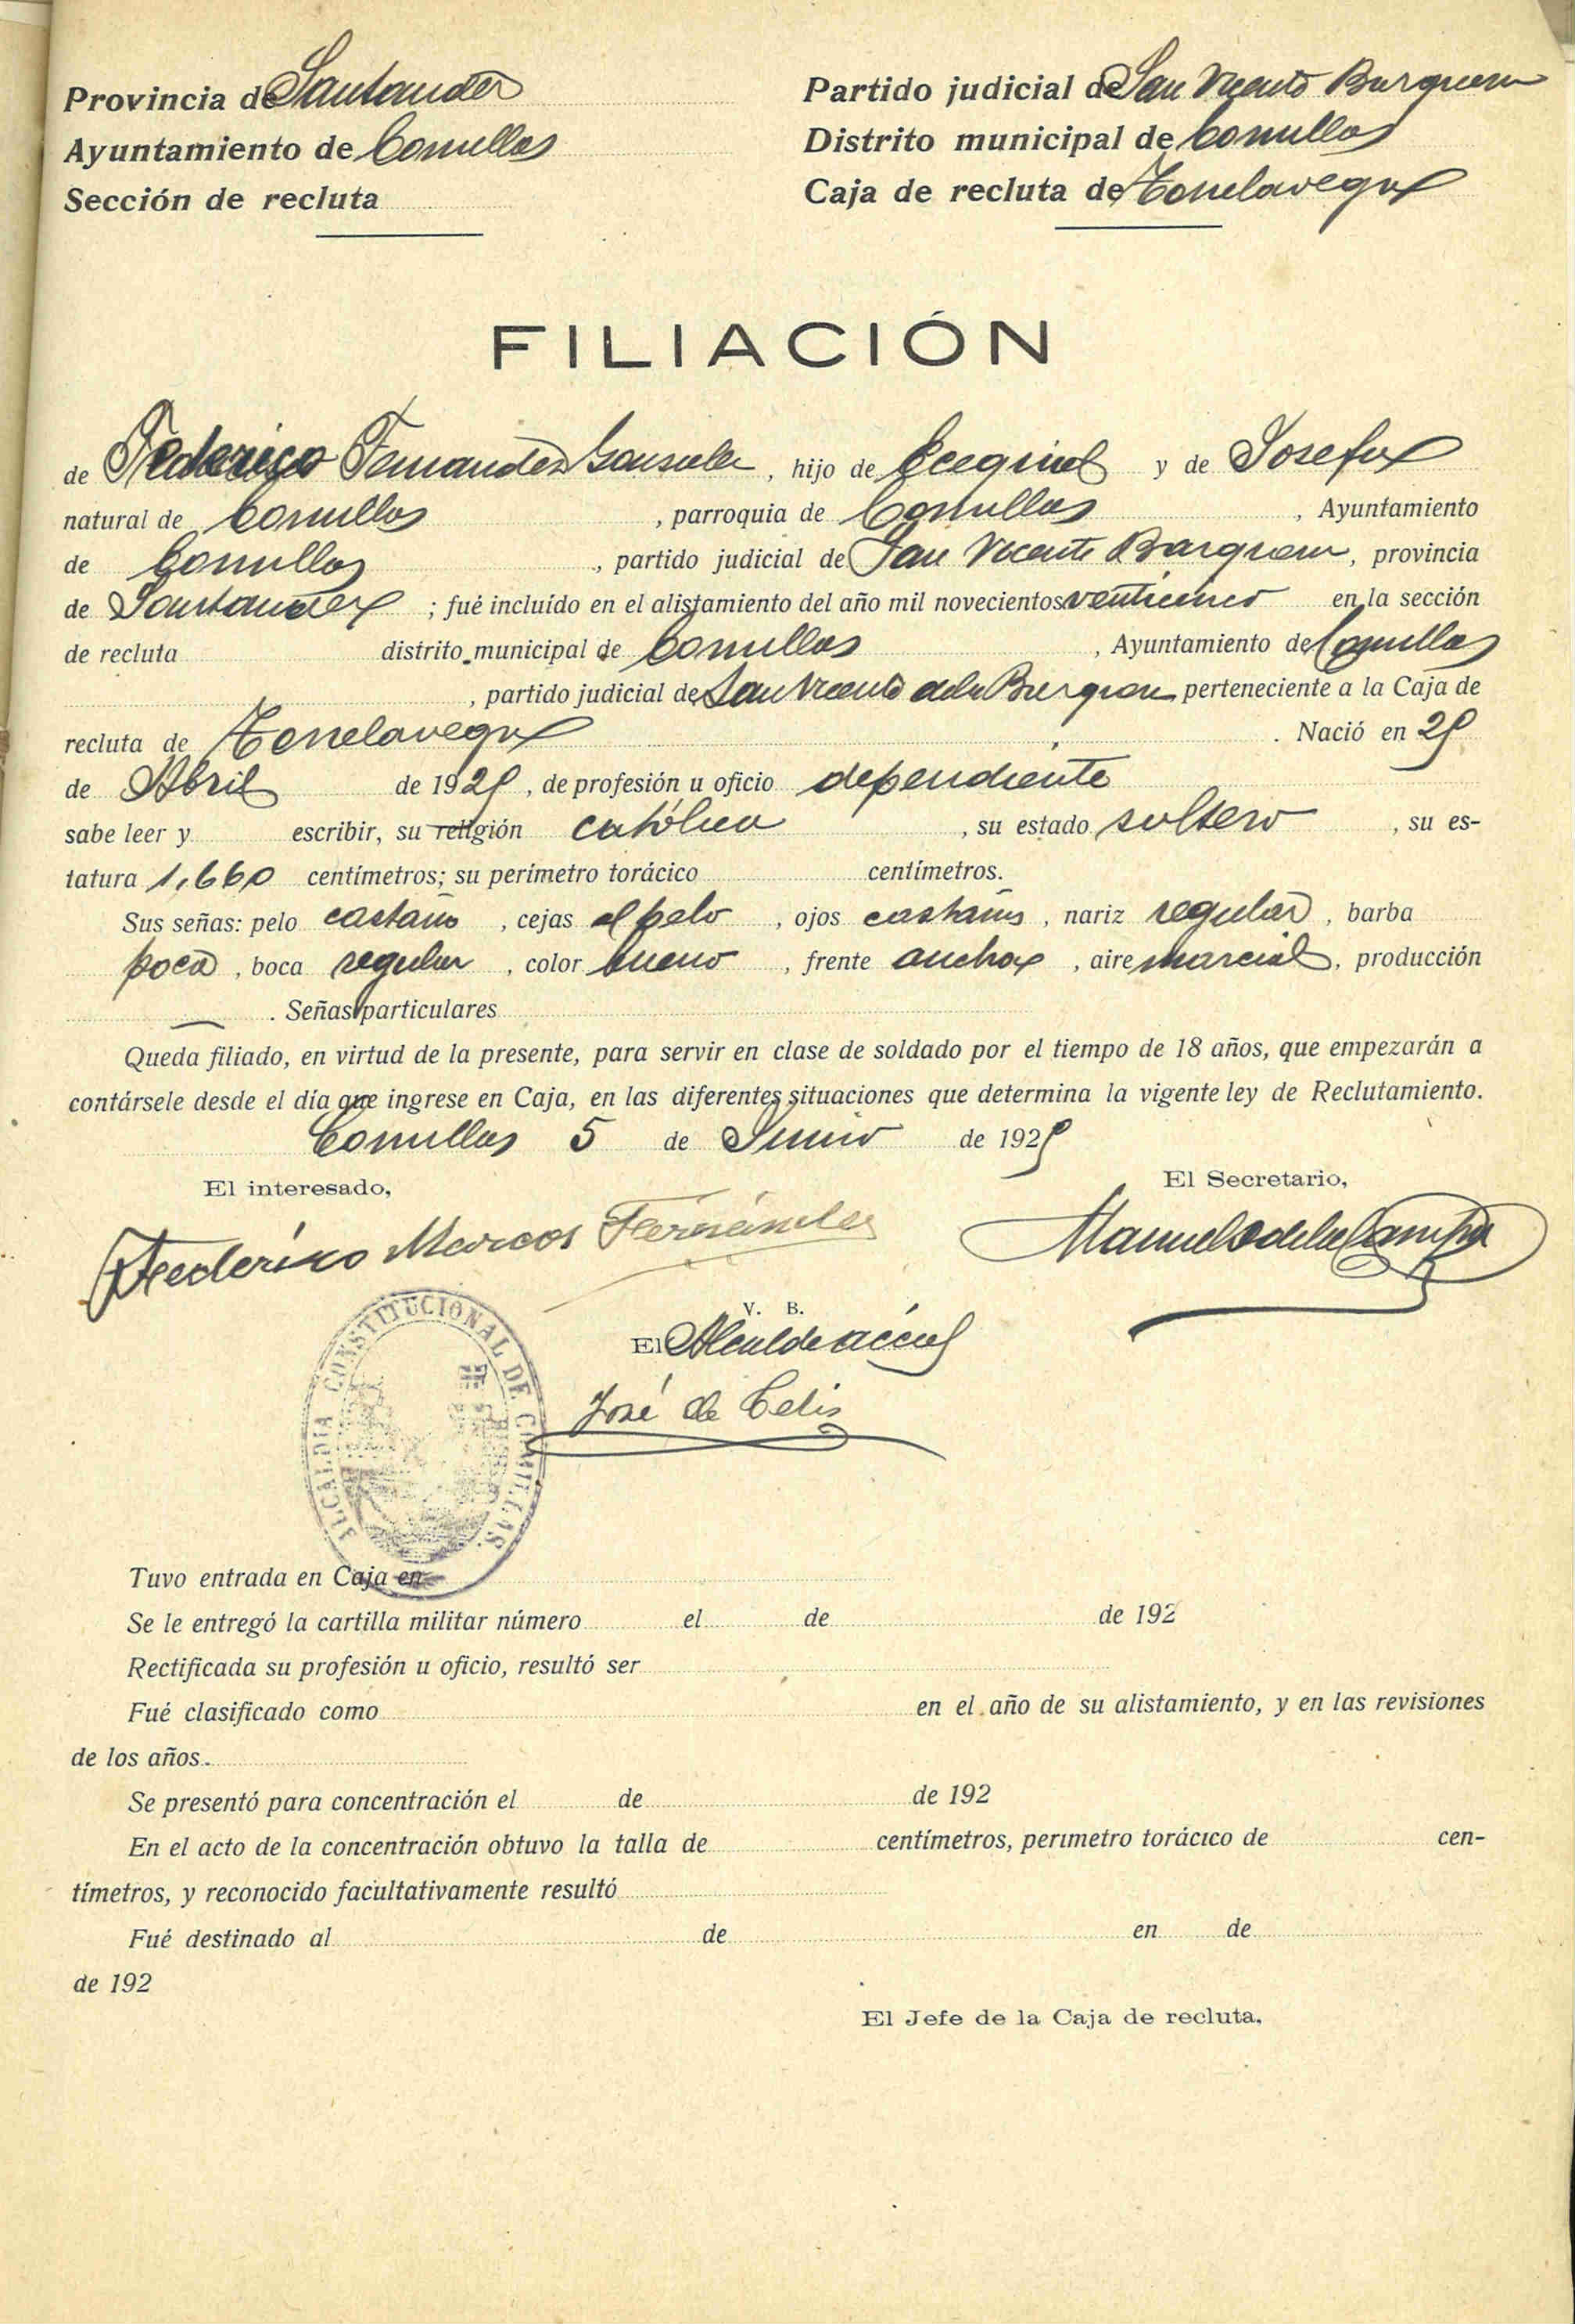 Provincia de Santander
Ayuntamiento de Comillas
Sección de recluta
Partido judicial de San Vicente Barquera
Distrito municipal de Comillas
Caja de recluta de Torrelavega
FILIACIÓN
de Federico Fernandez Gonzalez, hijo de Ecequiel y de Josefa
natural de Comillas, parroquia de Comillas, Ayuntamiento
de Comillas, partido judicial de San Vicente Barquera, provincia
de Santander; fué incluído en el alistamiento del año mil novecientos venticinco en la sección
de recluta distrito municipal de Comillas, Ayuntamiento de Comillas
, partido judicial de San Vicente de la Barquera perteneciente a la Caja de
recluta de Torrelavega. Nació en 25
de Abril de 1925, de profesión u oficio dependiente
sabe leer y escribir, su religión católica, su estado soltero, su es-
tatura 1,660 centímetros; su perímetro torácico centímetros.
Sus señas: pelo castaño, cejas al pelo, ojos castaños, nariz regular, barba
poca, boca regular, color bueno, frente ancha, aire marcial, producción
. Señas particulares
Queda filiado, en virtud de la presente, para servir en clase de soldado por el tiempo de 18 años, que empezarán a
contársele desde el día que ingrese en Caja, en las diferentes situaciones que determina la vigente ley de Reclutamiento.
Comillas 5 de Junio de 1925
El interesado,
El Secretario,
Federico Marcos Fernández
Manuel de la Campa
V. B.
El Alcalde accal
José de Celis
ALCALDIA CONSTITUCIONAL DE COMILLAS
Tuvo entrada en Caja en
Se le entregó la cartilla militar número el de de 192
Rectificada su profesión u oficio, resultó ser
Fué clasificado como en el año de su alistamiento, y en las revisiones
de los años
Se presentó para concentración el de de 192
En el acto de la concentración obtuvo la talla de centímetros, perímetro torácico de cen-
tímetros, y reconocido facultativamente resultó
Fué destinado al de en de
de 192
El Jefe de la Caja de recluta,